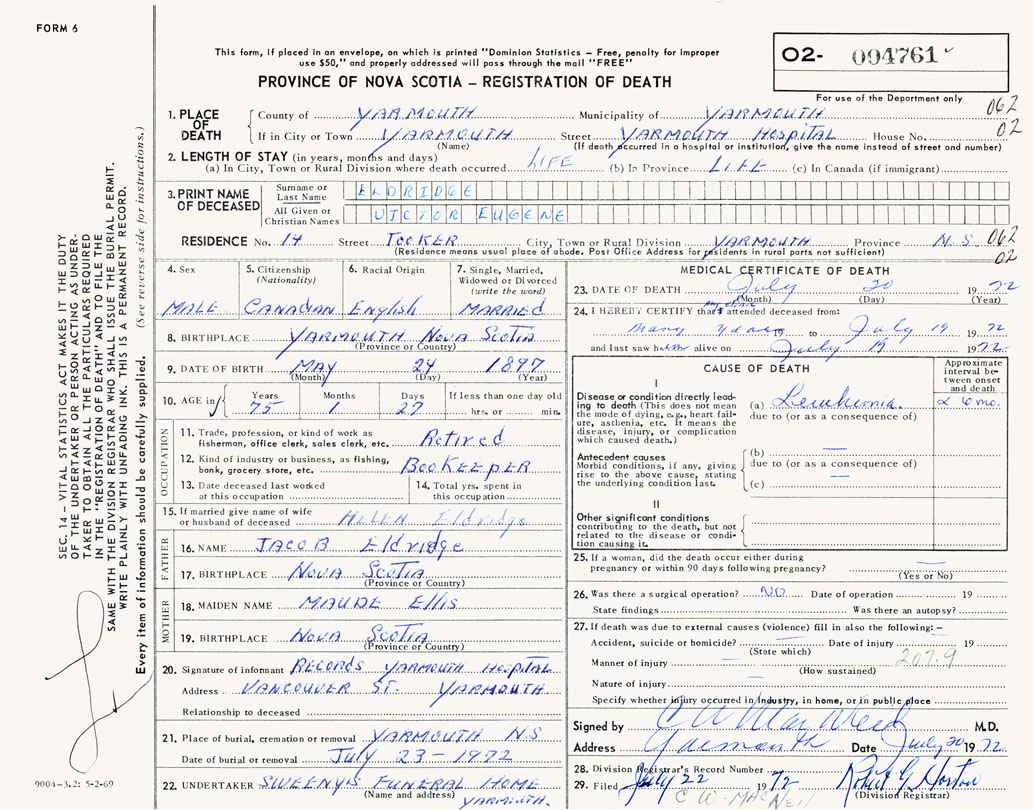 FORM 6
This form, if placed in an envelope, on which is printed "Dominion Statistics – Free, penalty for improper
use $50," and properly addressed will pass through the mail "FREE"
PROVINCE OF NOVA SCOTIA – REGISTRATION OF DEATH
O2- 004761
For use of the Department only
1. PLACE OF DEATH County of YARMOUTH Municipality of YARMOUTH 062
If in City or Town YARMOUTH Street YARMOUTH HOSPITAL House No. 02
(Name) (If death occurred in a hospital or institution, give the name instead of street and number)
2. LENGTH OF STAY (in years, months and days)
(a) In City, Town or Rural Division where death occurred LIFE (b) In Province LIFE (c) In Canada (if immigrant)
3. PRINT NAME OF DECEASED
Surname or Last Name ELDRIDGE
All Given or Christian Names VICTOR EUGENE
RESIDENCE No. 14 Street TOOKER City, Town or Rural Division YARMOUTH Province N.S 062
(Residence means usual place of abode. Post Office Address for residents in rural parts not sufficient) 02
4. Sex MALE
5. Citizenship (Nationality) CANADIAN
6. Racial Origin English
7. Single, Married, Widowed or Divorced (write the word) MARRIED
8. BIRTHPLACE YARMOUTH NOVA SCOTIA
(Province or Country)
9. DATE OF BIRTH MAY 24 1897
(Month) (Day) (Year)
10. AGE in Years Months Days If less than one day old
75 1 27 hrs. or min.
OCCUPATION
11. Trade, profession or kind of work as
fisherman, office clerk, sales clerk, etc. Retired
12. Kind of industry or business, as fishing,
bank, grocery store, etc. BOOKEEPER
13. Date deceased last worked
at this occupation
14. Total yrs. spent in
this occupation
15. If married give name of wife
or husband of deceased HELEN Eldridge
FATHER
16. NAME JACOB Eldridge
17. BIRTHPLACE NOVA SCOTIA
(Province or Country)
MOTHER
18. MAIDEN NAME MAUDE Ellis
19. BIRTHPLACE NOVA SCOTIA
(Province or Country)
20. Signature of informant RECORDS YARMOUTH HOSPITAL
Address VANCOUVER ST. YARMOUTH
Relationship to deceased
21. Place of burial, cremation or removal YARMOUTH N.S
Date of burial or removal July 23 – 1972
22. UNDERTAKER SWEENY'S FUNERAL HOME
(Name and address) YARMOUTH.
MEDICAL CERTIFICATE OF DEATH
23. DATE OF DEATH July 20 1972
(Month) (Day) (Year)
24. I HEREBY CERTIFY that I attended deceased from:
many years 19 to July 19 1972
and last saw him alive on July 19 1972
CAUSE OF DEATH
Approximate interval between onset and death
I
Disease or condition directly leading to death (This does not mean the mode of dying, e.g., heart failure, asthenia, etc. It means the disease, injury, or complication which caused death.)
(a) Leukemia 6 mo.
due to (or as a consequence of)
Antecedent causes
Morbid conditions, if any, giving rise to the above cause, stating the underlying condition last.
(b) —
due to (or as a consequence of)
(c) —
II
Other significant conditions
contributing to the death, but not related to the disease or condition causing it.
25. If a woman, did the death occur either during
pregnancy or within 90 days following pregnancy? —
(Yes or No)
26. Was there a surgical operation? NO Date of operation 19
State findings Was there an autopsy?
27. If death was due to external causes (violence) fill in also the following: –
Accident, suicide or homicide? — Date of injury 19
(State which) 207.9
Manner of injury —
(How sustained)
Nature of injury —
Specify whether injury occurred in industry, in home, or in public place
Signed by C W MacNeil M.D.
Address Yarmouth Date July 20 1972
28. Division Registrar's Record Number
29. Filed July 22 1972 Robert G Horton
C. W. MACNeil (Division Registrar)
SEC. 14 – VITAL STATISTICS ACT MAKES IT THE DUTY
OF THE UNDERTAKER OR PERSON ACTING AS UNDER-
TAKER TO OBTAIN ALL THE PARTICULARS REQUIRED
IN THE "REGISTRATION OF DEATH" AND TO FILE THE
SAME WITH THE DIVISION REGISTRAR WHO SHALL ISSUE THE BURIAL PERMIT.
WRITE PLAINLY WITH UNFADING INK. THIS IS A PERMANENT RECORD.
Every item of information should be carefully supplied. (See reverse side for instructions.)
9004-3.2: 5-2-69